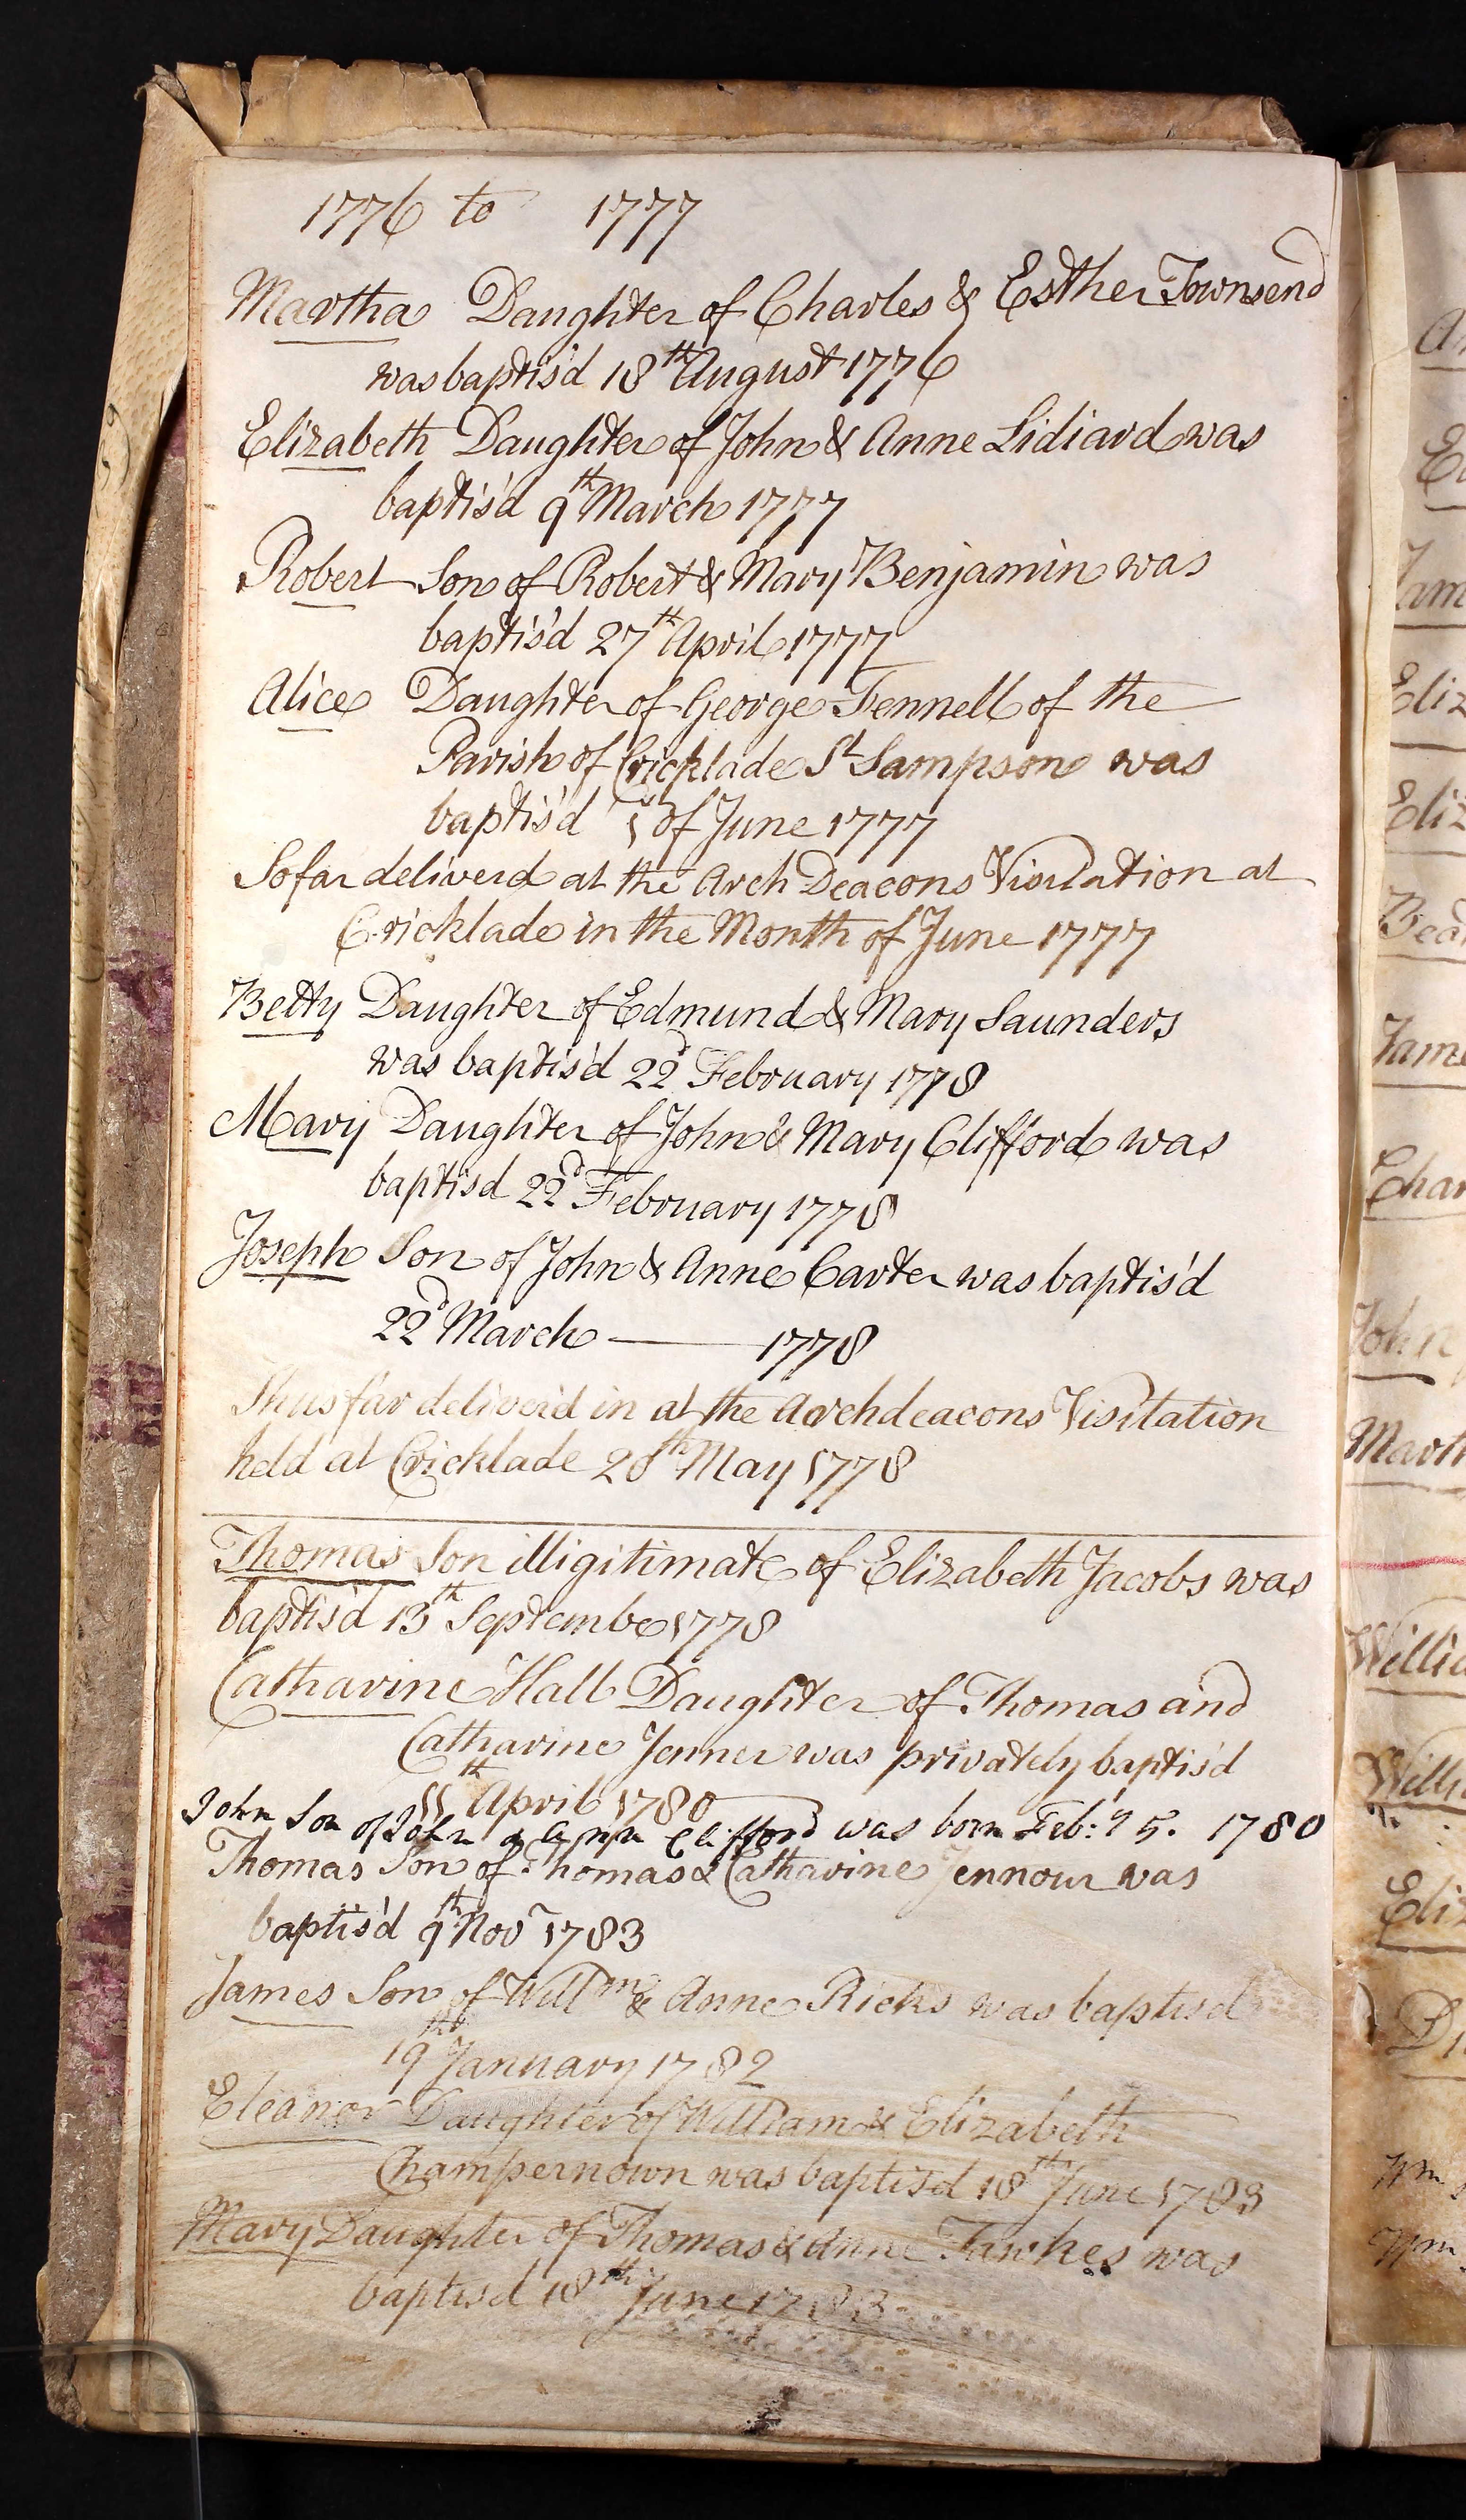 1776 to 1777
Martha Daughter of Charles & Esther Townsend
was baptis'd 18th August 1776
Elizabeth Daughter of John & Anne Lidiard was
baptis'd 9th March 1777
Robert Son of Robert & Mary Benjamin was
baptis'd 27th April 1777
Alice Daughter of George Fennell of the
Parish of Cricklade St Sampson was
baptis'd 1st of June 1777
So far deliverd at the Arch Deacons Visitation at
Cricklade in the Month of June 1777
Betty Daughter of Edmund & Mary Saunders
was baptis'd 22d February 1778
Mary Daughter of John & Mary Clifford was
baptisd 22d February 1778
Joseph Son of John & Anne Carter was baptis'd
22d March 1778
Thus far deliver'd in at the Archdeacons Visitation
held at Cricklade 20th May 1778
Thomas Son illigitimate of Elizabeth Jacobs was
baptis'd 13th Septembe 1778
Catharine Hall Daughter of Thomas and
Catharine Jenner was privately baptis'd
11th April 1780
John Son of John & Ann Clifford was born Feb:y 5. 1780
Thomas Son of Thomas & Catharine Jennour was
baptis'd 9th Novr 1783
James Son of Willm & Anne Ricks was baptisd
19th January 1782
Eleanor Daughter of William & Elizabeth
Champernown was baptisd 18th June 1783
Mary Daughter of Thomas & Anne Fawkes was
baptisd 18th June 1783
Mart